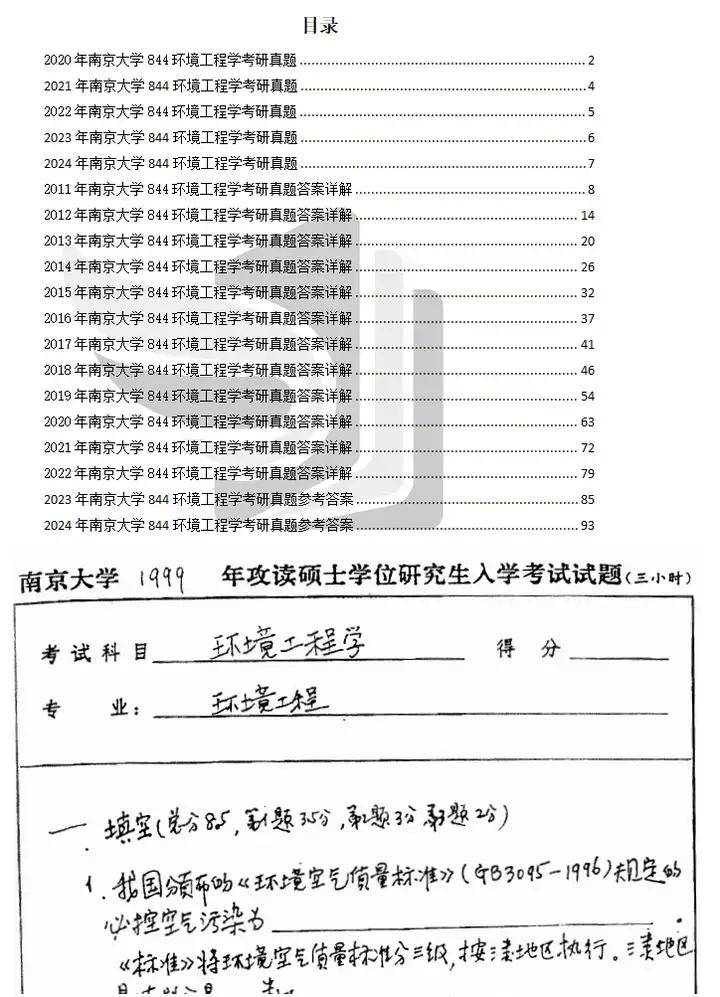 目录
2020年南京大学844环境工程学考研真题 2
2021年南京大学844环境工程学考研真题 4
2022年南京大学844环境工程学考研真题 5
2023年南京大学844环境工程学考研真题 6
2024年南京大学844环境工程学考研真题 7
2011年南京大学844环境工程学考研真题答案详解 8
2012年南京大学844环境工程学考研真题答案详解 14
2013年南京大学844环境工程学考研真题答案详解 20
2014年南京大学844环境工程学考研真题答案详解 26
2015年南京大学844环境工程学考研真题答案详解 32
2016年南京大学844环境工程学考研真题答案详解 37
2017年南京大学844环境工程学考研真题答案详解 41
2018年南京大学844环境工程学考研真题答案详解 46
2019年南京大学844环境工程学考研真题答案详解 54
2020年南京大学844环境工程学考研真题答案详解 63
2021年南京大学844环境工程学考研真题答案详解 72
2022年南京大学844环境工程学考研真题答案详解 79
2023年南京大学844环境工程学考研真题参考答案 85
2024年南京大学844环境工程学考研真题参考答案 93
南京大学 1999 年攻读硕士学位研究生入学考试试题(三小时)
考试科目 环境工程学 得分
专业: 环境工程
一. 填空(总分8.5, 第1题3.5分, 第2题3分 第3题2分)
1. 我国颁布的《环境空气质量标准》(GB3095-1996)规定的
必控空气污染为 .
《标准》将环境空气质量标准分三级,按三类地区执行。三类地区